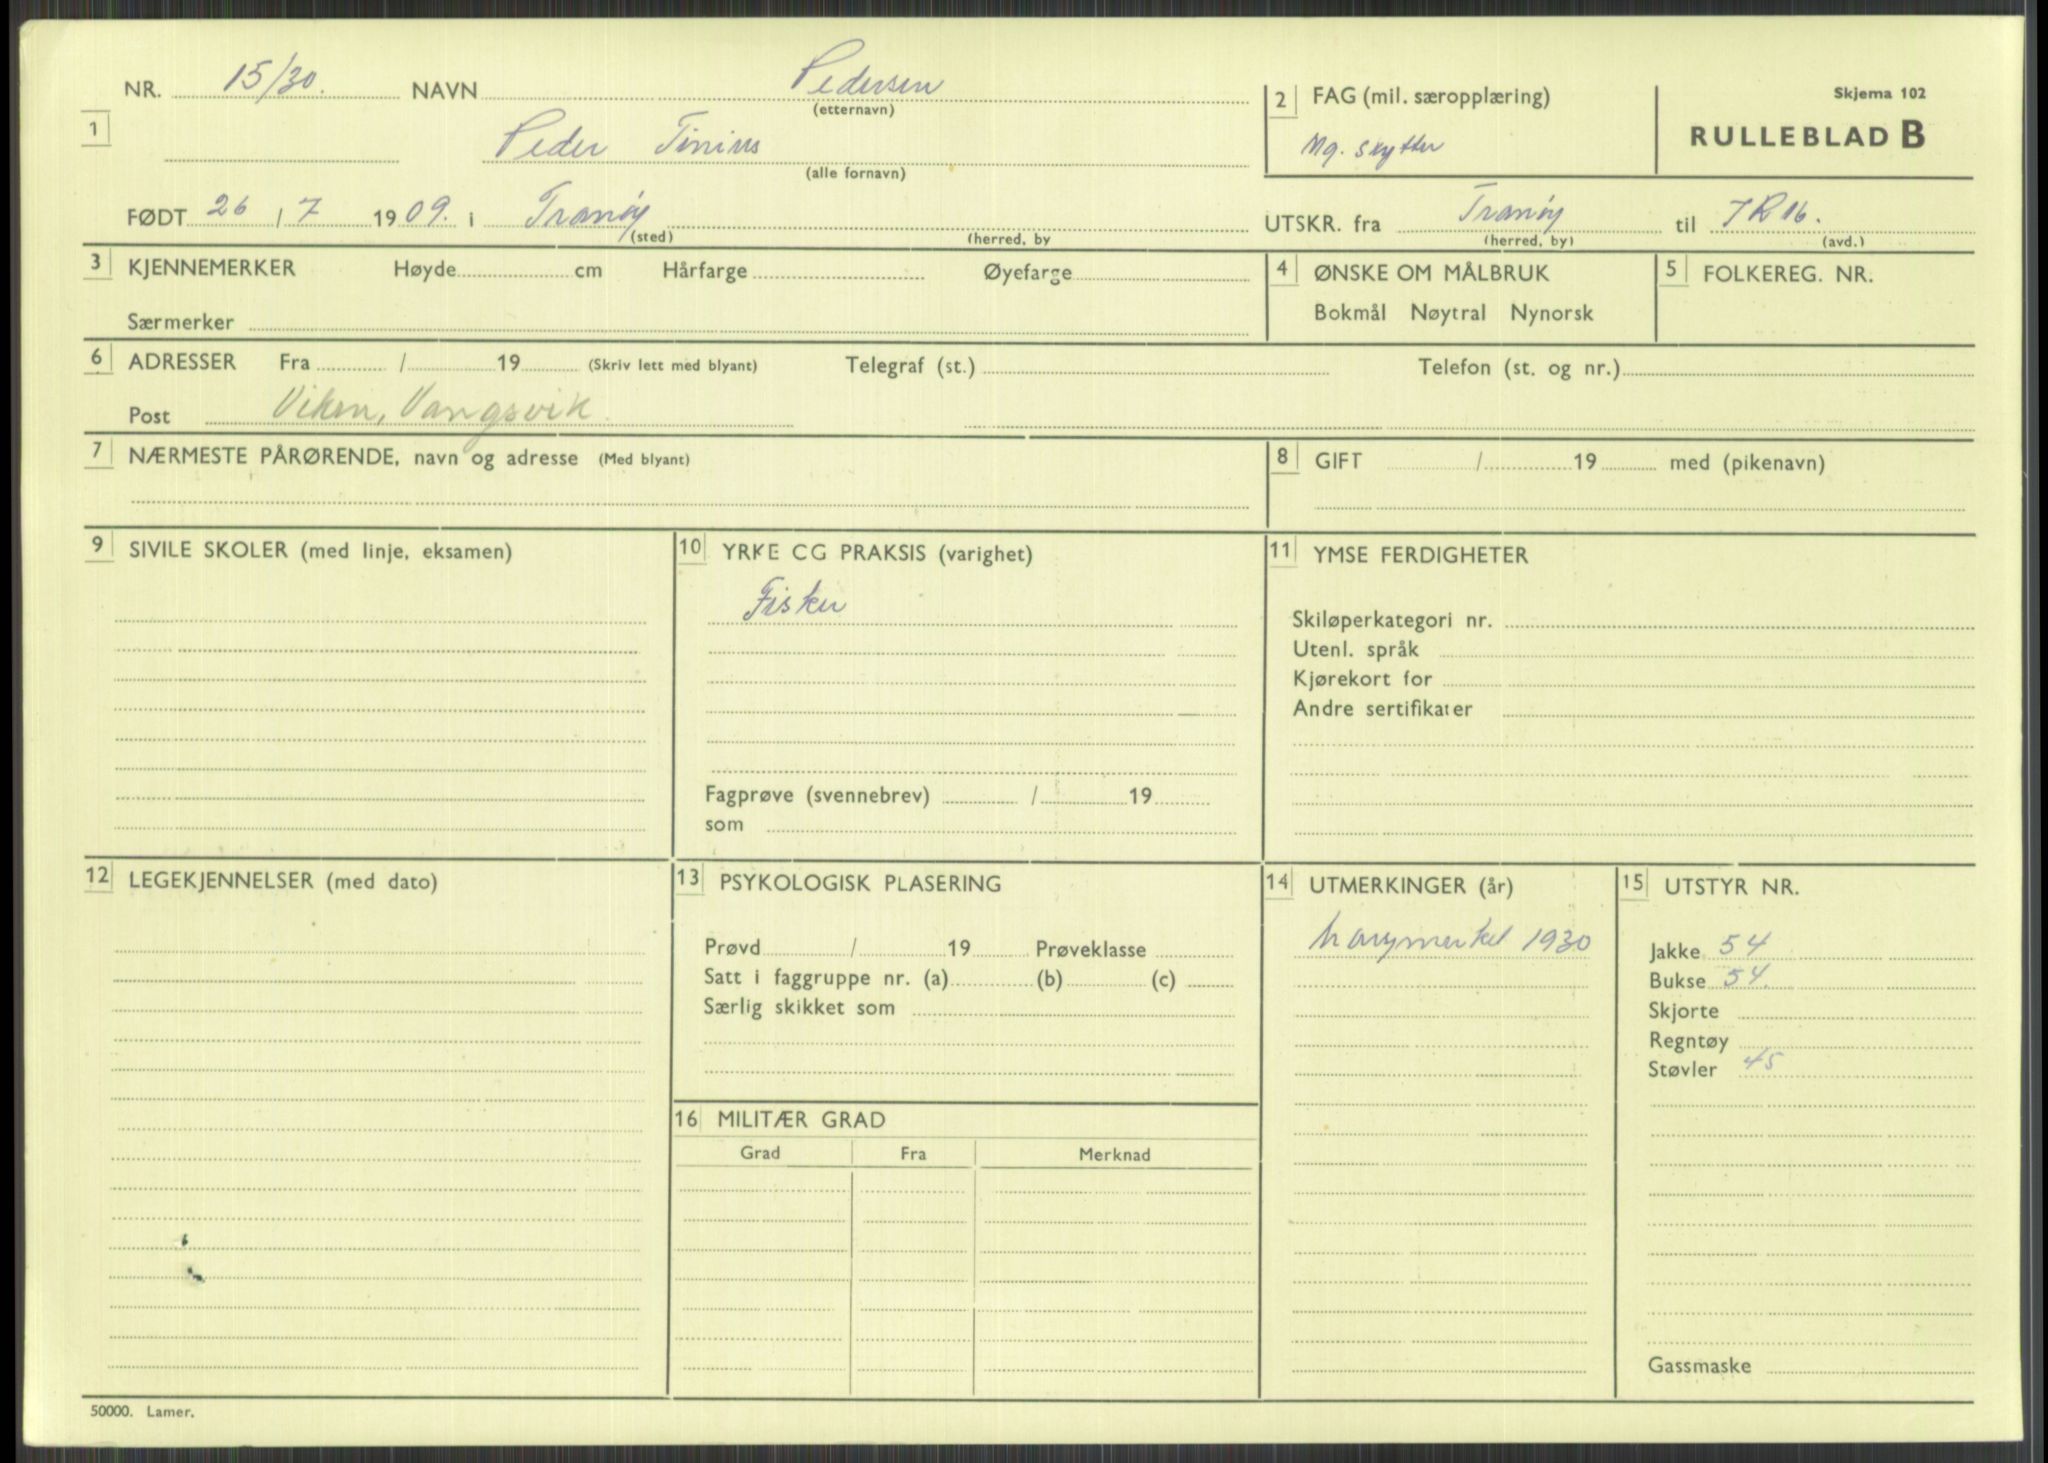 NR. 15/30. NAVN Pedersen
(etternavn)
1 Peder Tinius
(alle fornavn)
2 FAG (mil. særopplæring)
Mg. skytter
Skjema 102
RULLEBLAD B
FØDT 26 / 7 1909. i Tranøy
(sted) (herred, by
UTSKR. fra Tranøy til IR 16.
(herred, by) (avd.)
3 KJENNEMERKER Høyde cm Hårfarge Øyefarge
Særmerker
4 ØNSKE OM MÅLBRUK
Bokmål Nøytral Nynorsk
5 FOLKEREG. NR.
6 ADRESSER Fra / 19 (Skriv lett med blyant) Telegraf (st.) Telefon (st. og nr.)
Post Viken, Vangsvik.
7 NÆRMESTE PÅRØRENDE, navn og adresse (Med blyant)
8 GIFT / 19 med (pikenavn)
9 SIVILE SKOLER (med linje, eksamen)
10 YRKE CG PRAKSIS (varighet)
Fisker
Fagprøve (svennebrev) / 19
som
11 YMSE FERDIGHETER
Skiløperkategori nr.
Utenl. språk
Kjørekort for
Andre sertifikater
12 LEGEKJENNELSER (med dato)
13 PSYKOLOGISK PLASERING
Prøvd / 19 Prøveklasse
Satt i faggruppe nr. (a) (b) (c)
Særlig skikket som
14 UTMERKINGER (år)
1930
15 UTSTYR NR.
Jakke 54
Bukse 54.
Skjorte
Regntøy
Støvler 45
Gassmaske
16 MILITÆR GRAD
Grad Fra Merknad
50000. Lamer.